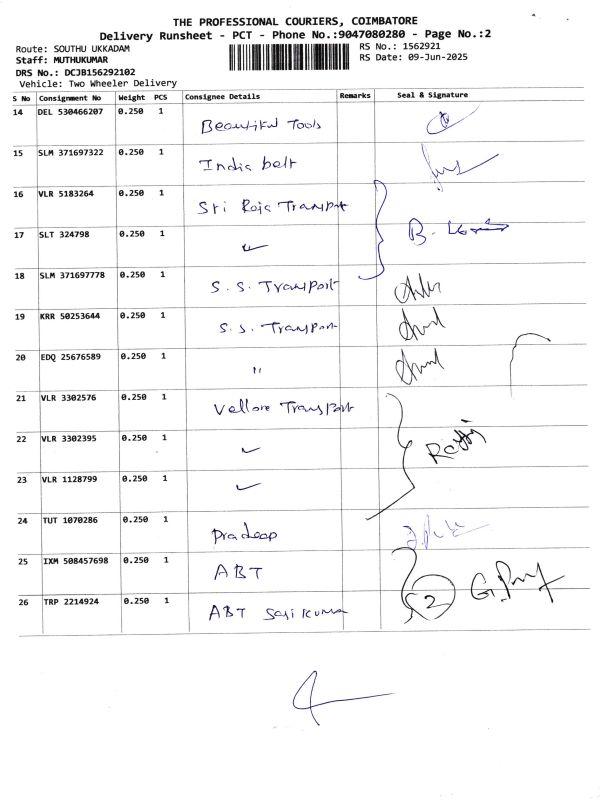 THE PROFESSIONAL COURIERS, COIMBATORE
Delivery Runsheet - PCT - Phone No.:9047080280 - Page No.:2
Route: SOUTHU UKKADAM
RS No.: 1562921
Staff: MUTHUKUMAR
RS Date: 09-Jun-2025
DRS No.: DCJB156292102
Vehicle: Two Wheeler Delivery
S No Consignment No Weight PCS Consignee Details Remarks Seal & Signature
14 DEL 530466207 0.250 1 Beautiful Tools
15 SLM 371697322 0.250 1 India belt
16 VLR 5183264 0.250 1 Sri Raja Transport
17 SLT 324798 0.250 1 〃
18 SLM 371697778 0.250 1 S. S. Transport
19 KRR 50253644 0.250 1 S. S. Transport
20 EDQ 25676589 0.250 1 〃
21 VLR 3302576 0.250 1 Vellore Transport
22 VLR 3302395 0.250 1 〃
23 VLR 1128799 0.250 1 〃
24 TUT 1070286 0.250 1 Pradeep
25 IXM 508457698 0.250 1 ABT
26 TRP 2214924 0.250 1 ABT 2